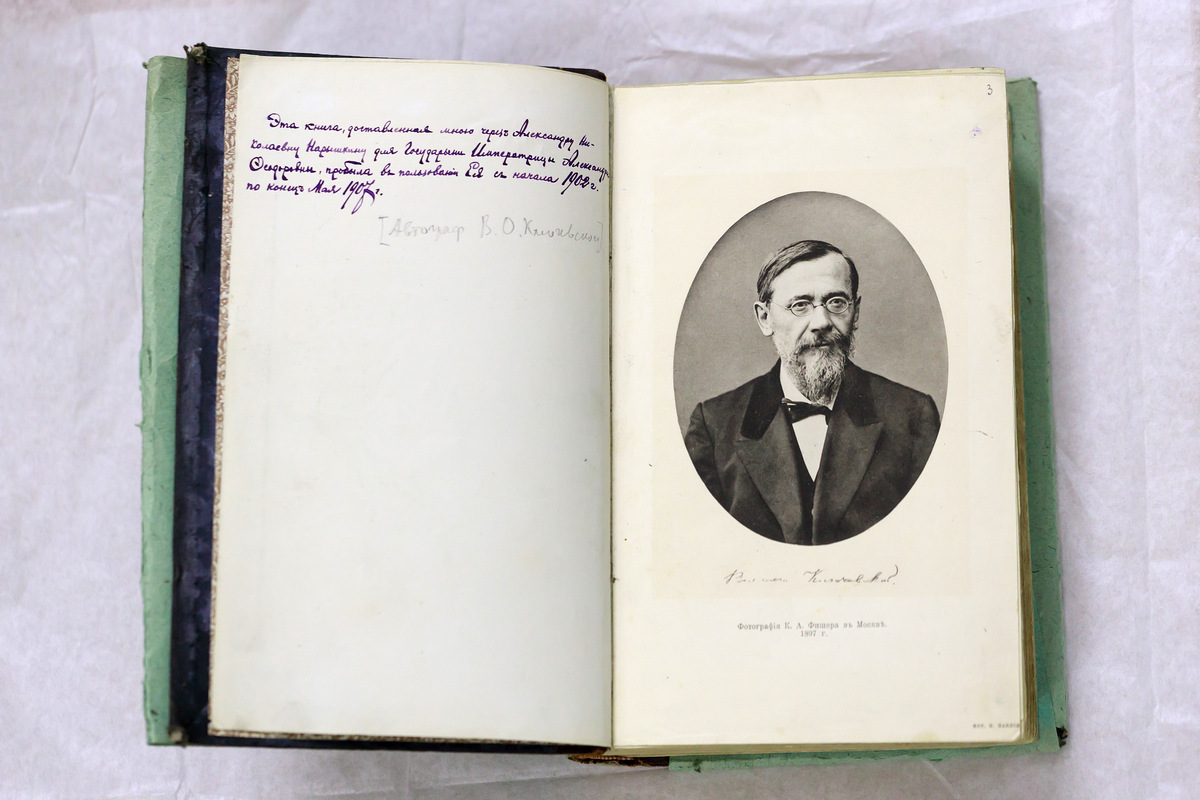 Эта книга, доставленная мною черезъ Александру Ни-
колаевну Нарышкину для Государыни Императрицы Александры
Ѳеодоровны, пробыла въ пользованіи Ея съ начала 1902 г.
по конецъ Мая 1907 г.
[Автограф В. О. Ключевского]
3
Ключевскій.
Фотографія К. А. Фишера въ Москвѣ.
1897 г.